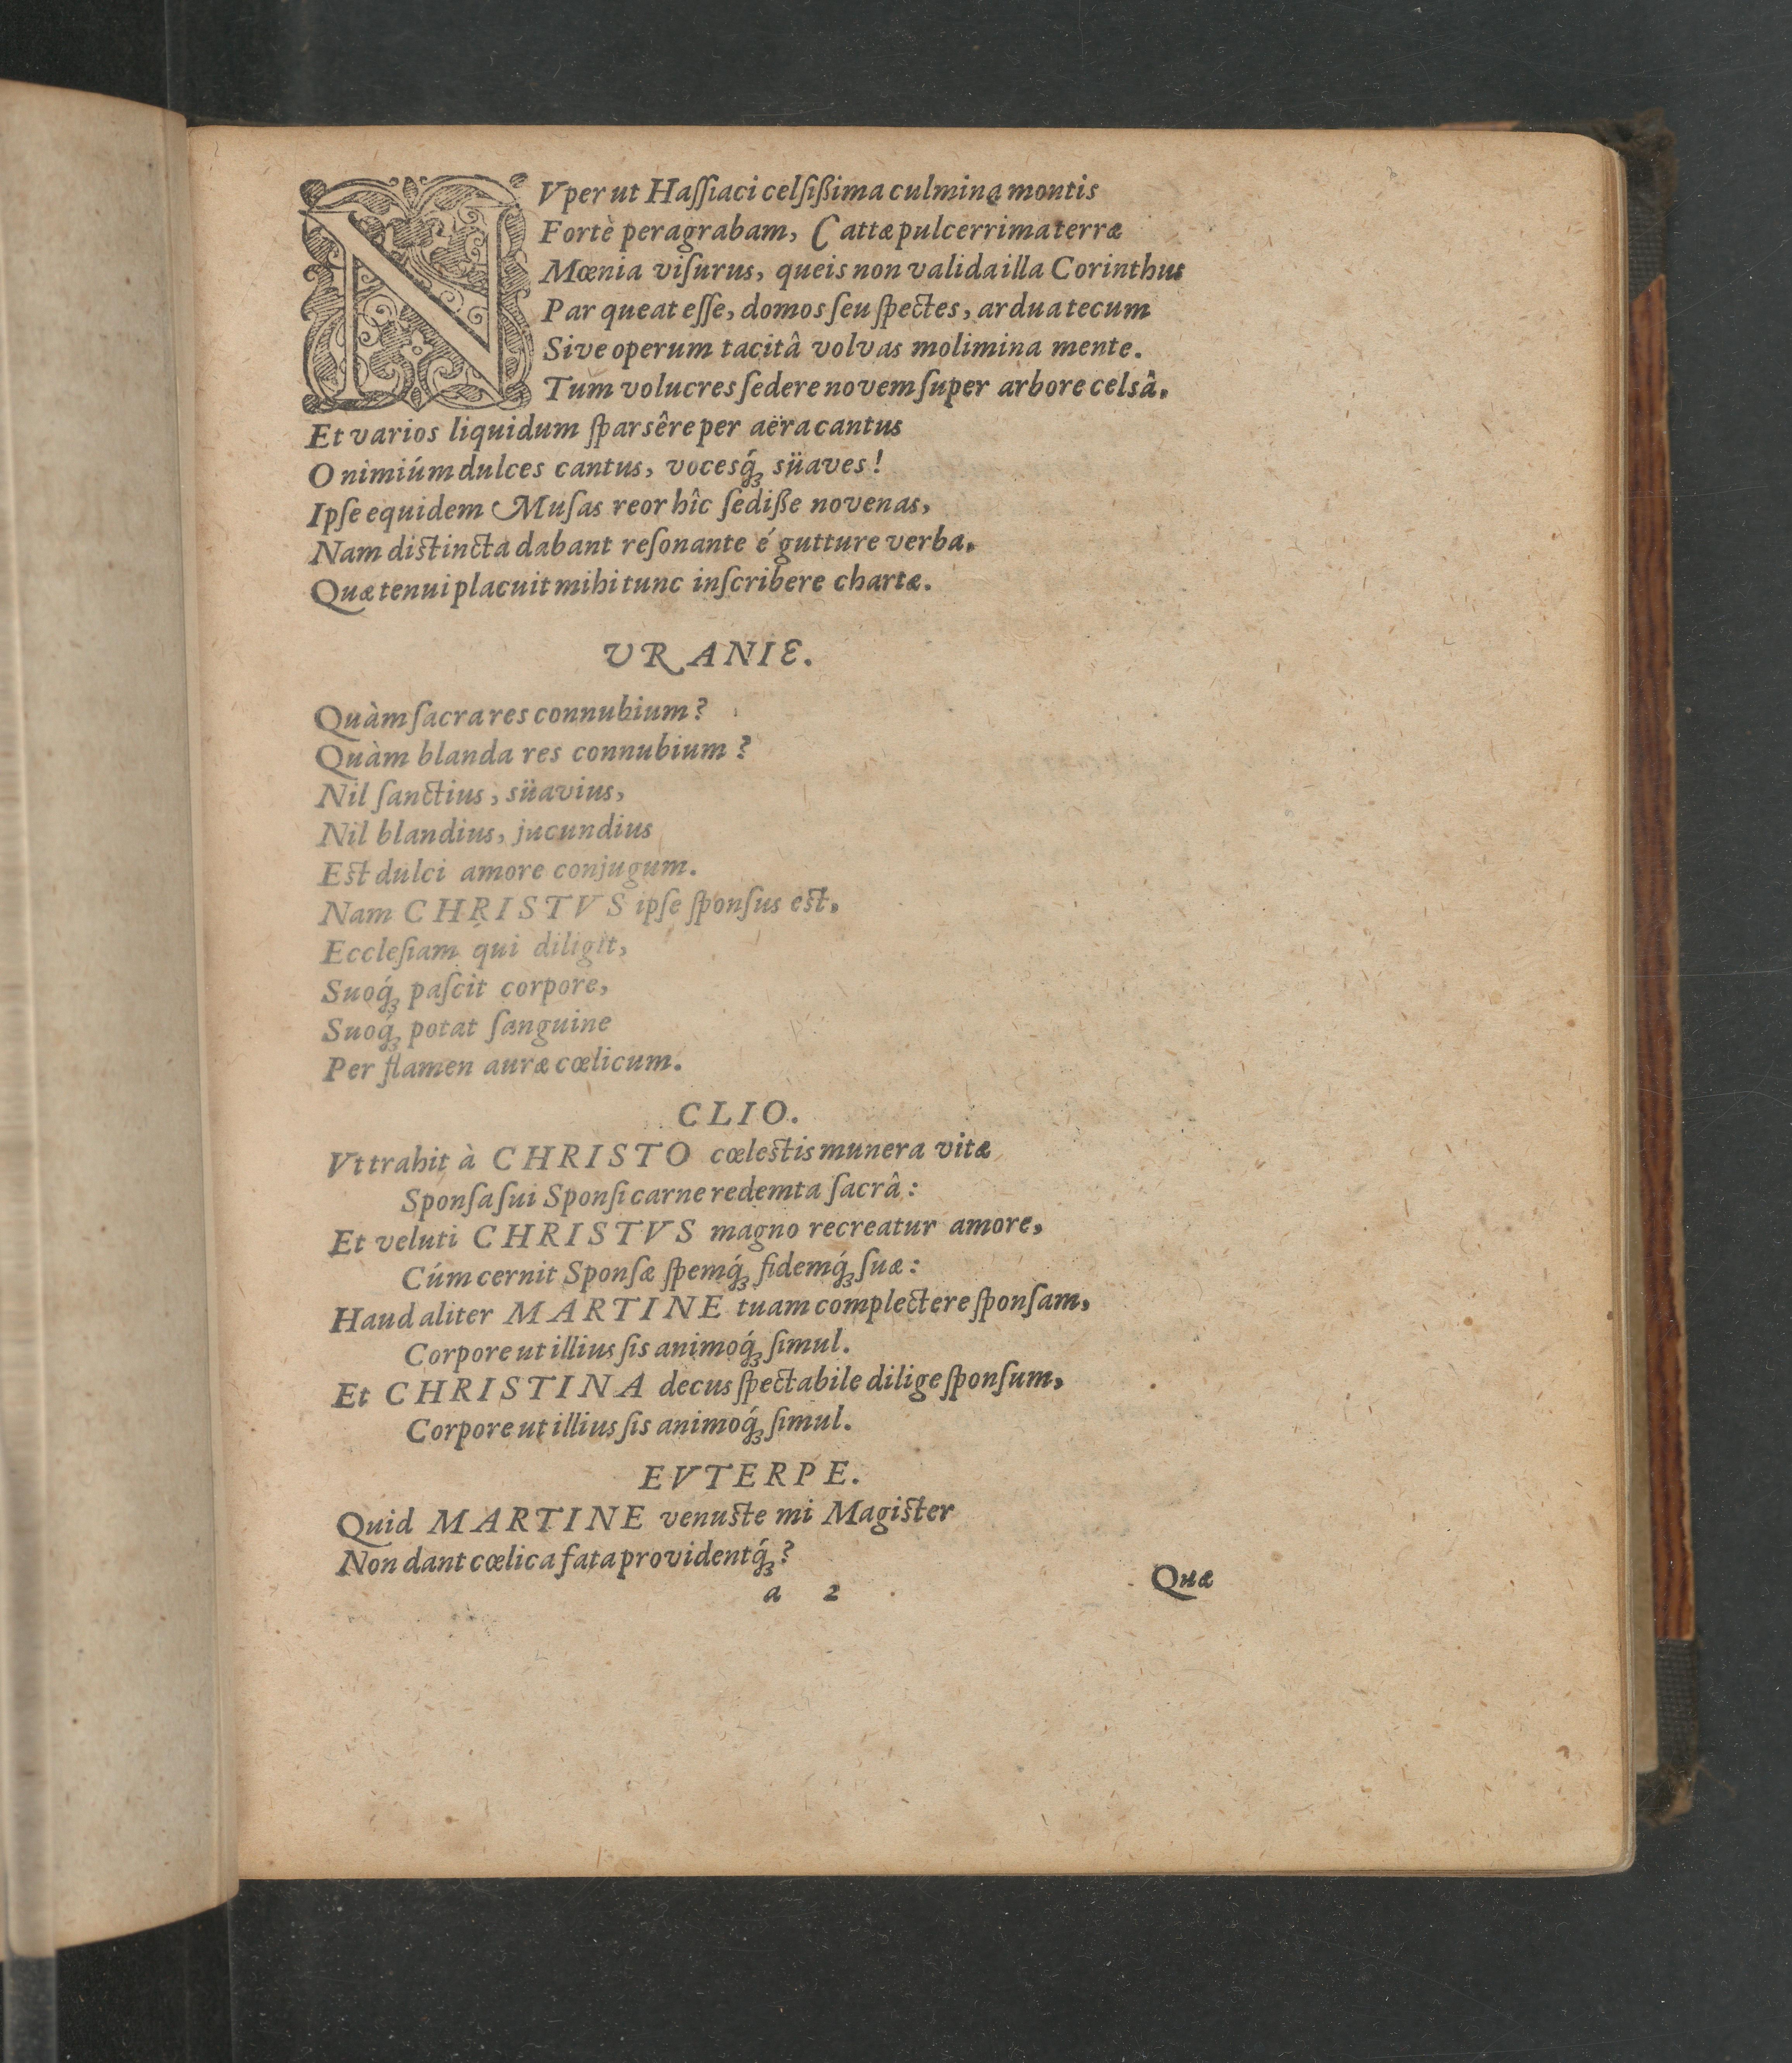 NVper ut Haſſiaci celſißima culmina montis
Fortè peragrabam, Cattæ pulcerrima terræ
Mœnia viſurus, queis non valida illa Corinthus
Par queat eſſe, domos ſeu ſpectes, ardua tecum
Sive operum tacitâ volvas molimina mente.
Tum volucres ſedere novem ſuper arbore celsâ,
Et varios liquidum ſparsêre per aëra cantus
O nimiúm dulces cantus, vocesq́ꝫ süaves!
Ipſe equidem Muſas reor hîc ſediße novenas,
Nam distincta dabant reſonante é gutture verba,
Quæ tenui placuit mihi tunc inſcribere chartæ.
URANIE.
Quàm ſacra res connubium?
Quàm blanda res connubium?
Nil ſanctius, süavius,
Nil blandius, jucundius
Est dulci amore conjugum.
Nam CHRISTVS ipſe ſponſus est,
Eccleſiam qui diligit,
Suoq́ꝫ paſcit corpore,
Suoq́ꝫ potat ſanguine
Per flamen auræ cœlicum.
CLIO.
Vt trahit à CHRISTO cœlestis munera vitæ
Sponſa ſui Sponſi carne redemta ſacrâ:
Et veluti CHRISTVS magno recreatur amore,
Cúm cernit Sponſæ ſpemq́ꝫ fidemq́ꝫ ſuæ:
Haud aliter MARTINE tuam complectere ſponſam,
Corpore ut illius ſis animoq́ꝫ ſimul.
Et CHRISTINA decus ſpectabile dilige ſponſum,
Corpore ut illius ſis animoq́ꝫ ſimul.
EVTERPE.
Quid MARTINE venuste mi Magister
Non dant cœlica fata providentq́ꝫ?
a 2 Quæ